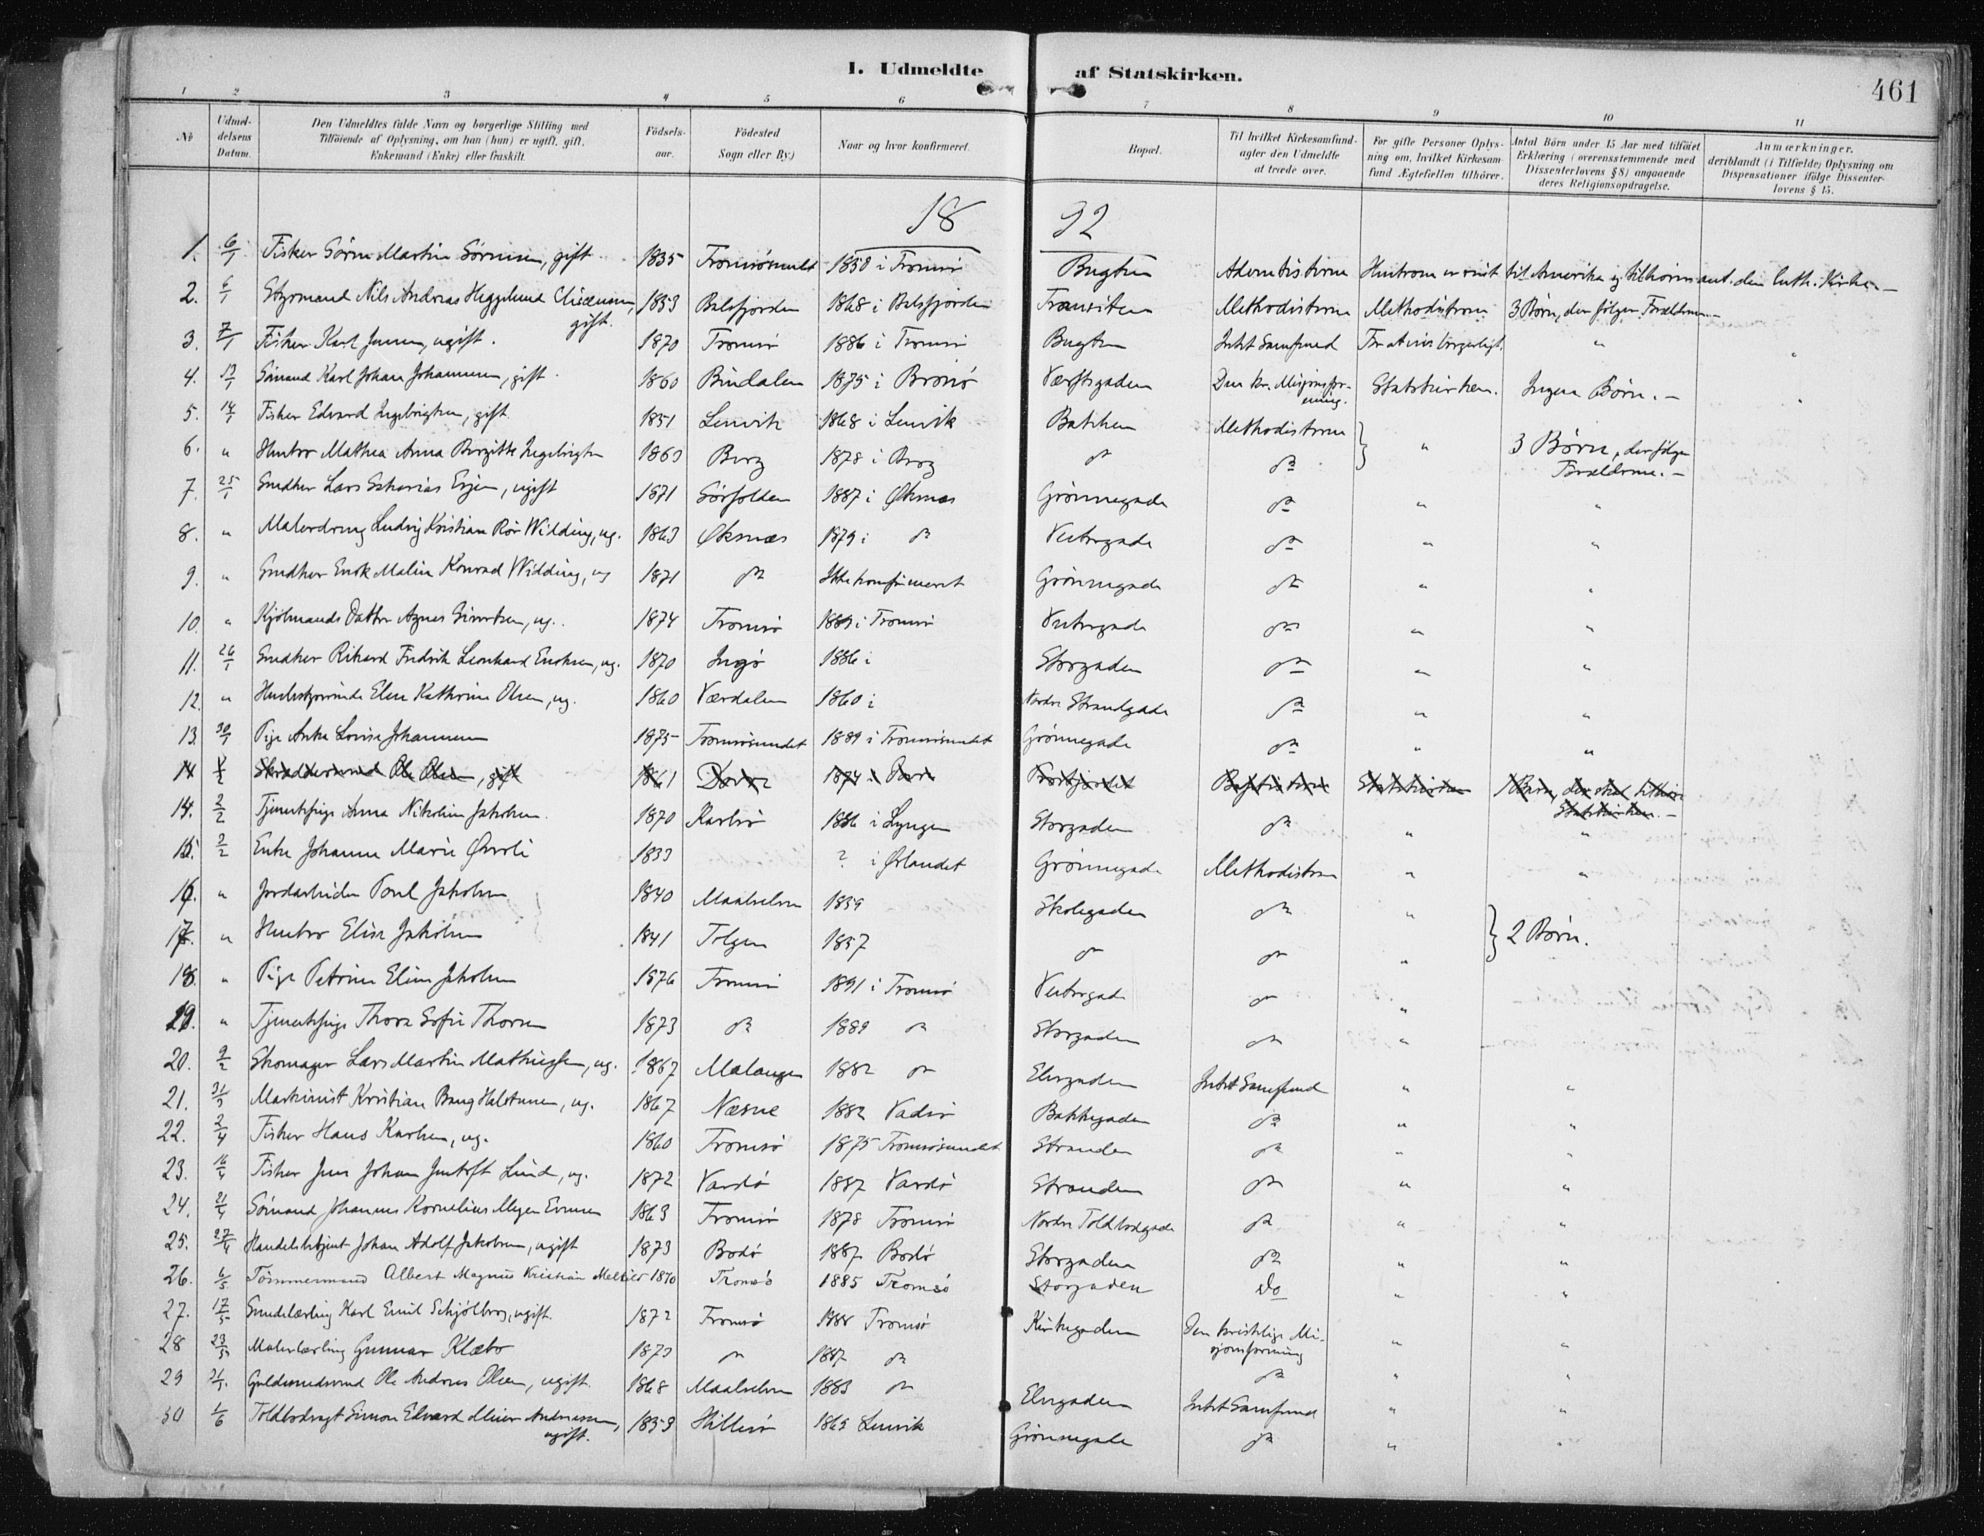 I. Udmeldte af Statskirken.
461
1 2 3 4 5 6 7 8 9 10 11
No
Udmeldelsens Datum.
Den Udmeldtes fulde Navn og borgerlige Stilling med Tilføiende af Oplysning, om han (hun) er ugift, gift, Enkemand (Enke) eller fraskilt.
Fødselsaar.
Fødested Sogn eller By.)
Naar og hvor konfirmeret.
Bopæl.
Til hvilket Kirkesamfund agter den Udmeldte at træde over.
For gifte Personer Oplysning om, hvilket Kirkesamfund Ægtefællen tilhører.
Antal Børn under 15 Aar med tilføiet Erklæring (overensstemmende med Dissenterlovens § 8) angaaende deres Religionsopdragelse.
Anmærkninger, deriblandt (i Tilfælde) Oplysning om Dispensationer ifølge Dissenterlovens § 15.
18 92
1. 6/1 Fisker Sørin Martin Sørensen, gift 1835 Tromsøsundet 1850 i Tromsø Bugten Adventisterne Hustruen er reist til Amerika og tilhører den luth. Kirke.
2. 6/1 Nils Andreas Heggelund gift. 1853 Balsfjorden 1868 i Balsfjorden Methodisterne Methodisterne 3 Børn, der følger Forældrene
3. 7/1 Fisker Karl Jensen, ugift. 1870 Tromsø 1886 i Tromsø Bugten Intet Samfund For at vies borgerligt. "
4. 13/1 Sømand Karl Johan Johannesen, gift. 1860 Bindalen 1875 i Brønø Værftsgaden Den kr. Misjonsforening. Statskirken. Ingen Børn.
5. 14/1 Fisker Edvard Ingebrigtsen, gift. 1851 Lenvik 1868 i Lenvik Bakken Methodisterne
6. " Hustro Mathea Anna Birgitte Ingebrigtsen 1863 Berg 1878 i Berg do do " 3 Børn, der følger Forældrene.
7. 25/1 Snedker Lars Evjen, ugift 1871 Sørfolden 1887 i Øksnes Grønnegade do " "
8. " Malerdreng Ludvig Kristian Widding, ug. 1863 Øksnæs 1879 i do Vestregade do " "
9. " Snedker Enok Malin Konrad Widding, ug 1871 do Ikke konfirmeret Grønnegade do " "
10. " Kjølmands Datter Agnes Sivertsen, ug. 1874 Tromsø 1889 i Tromsø Vestregade do " "
11. 26/1 Snedker Rikard Fredrik Leonhard Enoksen, ug. 1870 Ingø 1886 i Storgaden do " "
12. " Elen Kathrine Olsen, ug. 1860 Værdalen 1860 i Nordre Strandgade do " "
13. 30/1 Pige Anke Lovise Johannesen 1875 Tromsøsundet 1889 i Tromsøsundet Grønnegade do " "
14 1/2 Skræddersvend Ole Olsen, gift 1861 1874 i Baptisterne Statskirken 1 Barn, der skal tilhøre Statskirken.
14. 2/2 Tjenestepige Anna Nikoline Jakobsen. 1870 Karlsø 1886 i Lyngen Storgaden do " "
15. 3/2 Enke Johanna Marie 1833 ? i Ørlandet Grønnegade Methodisterne " "
16. " Jordarbeider Poul Jakobsen 1840 Maalselven 1859 Skolegaden do "
17. " Hustro Elise Jakobsen 1841 Tolgen 1857 do do " 2 Børn.
18. " Pige Petrine Eline Jakobsen 1876 Tromsø 1891 i Tromsø Vestregade do "
19. " Tjenestepige Thora Sofie Thorsen 1873 do 1889 do Storgaden do "
20. 9/2 Skomager Lars Martin Mathiassen, ug. 1867 Malangen 1882 do Elvegaden Intet Samfund " "
21. 31/3 Maskinist Kristian Bang Halstensen, ug. 1867 Næsne 1882 Vadsø Bakkegaden do " "
22. 2/4 Fisker Hans Karlsen, ug. 1860 Tromsø 1875 Tromsøsundet Stranden do " "
23. 16/4 Fisker Jens Johan Lind, ug. 1872 Vardø 1887 Vardø Stranden do " "
24. 21/4 Sømand Johannes Kornelius Meyer 1863 Tromsø 1878 Tromsø Nordre Toldbodgade do " "
25. 27/4 Handelsbetjent Johan Adolf Jakobsen, ugift 1873 Bodø 1887 Bodø Storgaden do " "
26. 6/5 Tømmermand Albert Magnus Kristian 1870 Tromsø 1885 Tromsø Storgaden Do " "
27. 17/5 Smedelærling Karl Emil Schjølberg, ugift. 1872 Tromsø 1888 Tromsø Kirkegaden Den kristelige Misjonsforening " "
28 23/5 Malerlærling Gunnar Klæbo 1873 do 1887 do do " "
29 Guldsmedsvend Ole Andreas Olsen, ugift. 1868 Maalselven 1883 do Elvegaden Intet Samfund " "
30 1/6 Toldbodvagt Simon Edvard Meier Andreassen, ugift. 1853 Hillesø 1869 Lenvik Grønnegade do " "